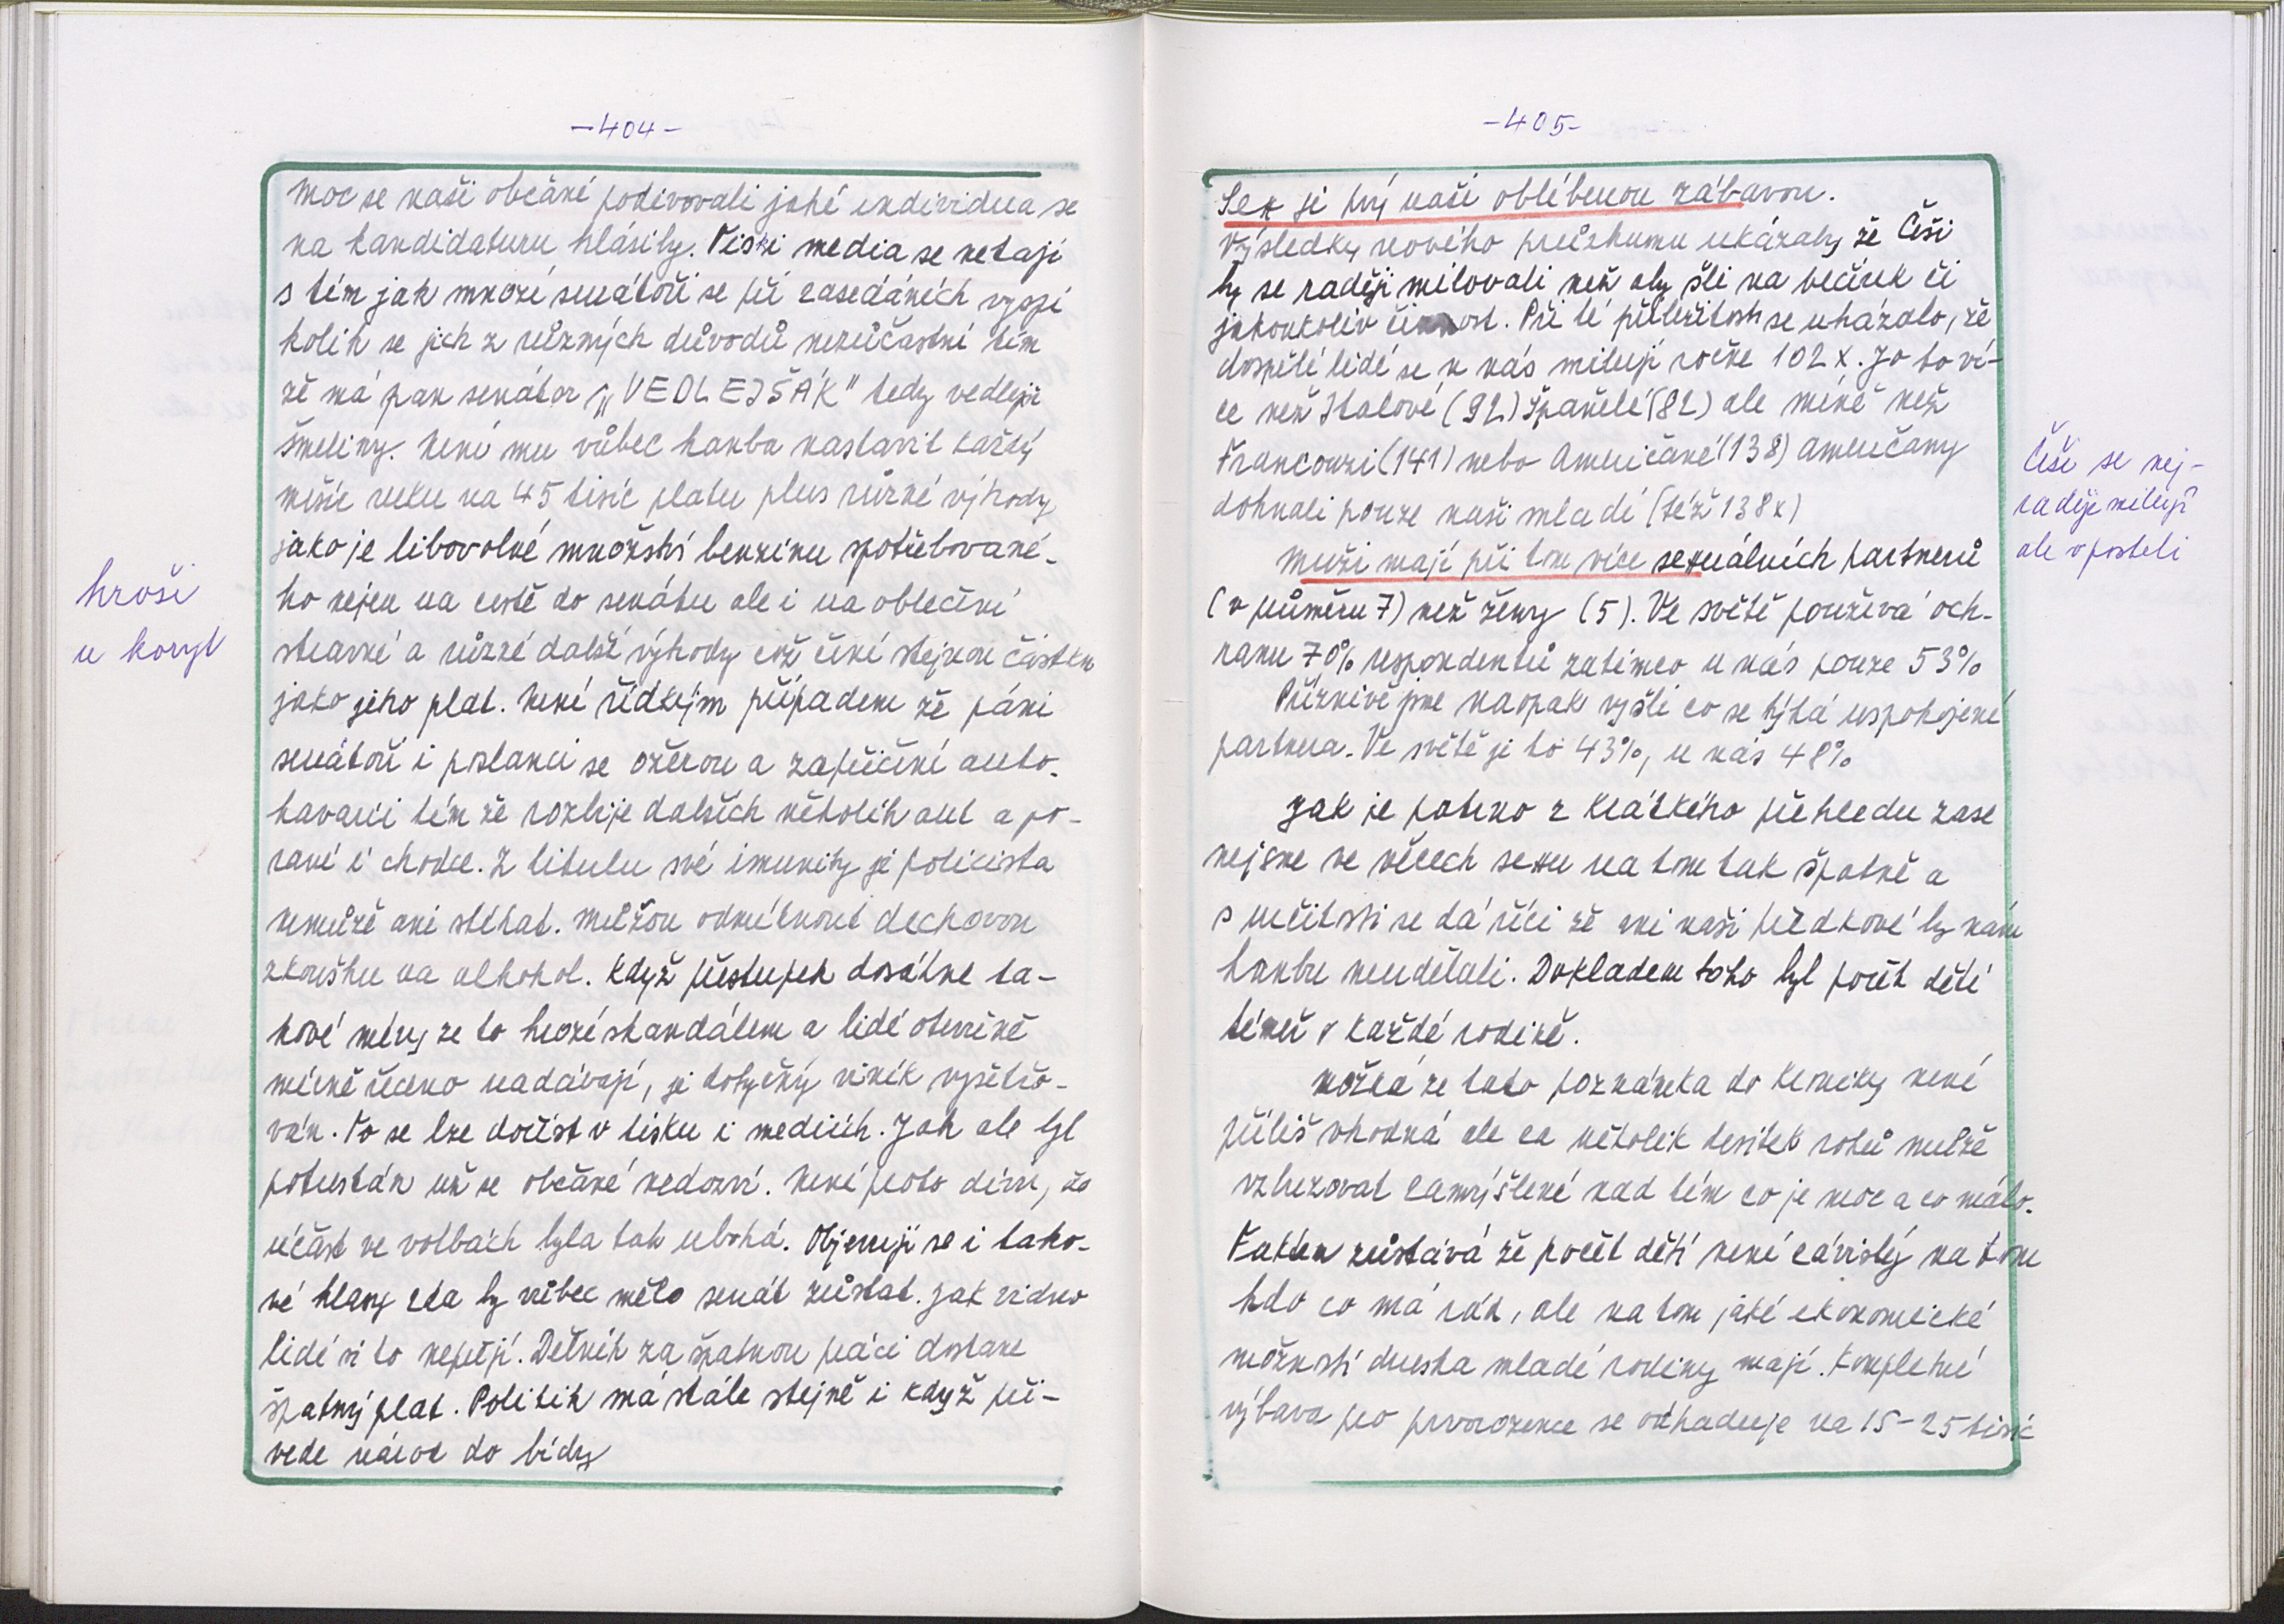 -404-
Moc se naši občané podivovali jaké individua se
na kandidaturu hlásily. Tisk i media se netají
s tím jak mnozí senátoři se při zasedáních vyspí
kolik se jich z různých důvodů nezúčastní tím
že má pan senátor „VEDLEJŠÁK" tedy vedlejší
šmeliny. Není mu vůbec hanba nastavit každý
měsíc ruku na 45 tisíc platu plus různé výhody
jako je libovolné množství benzinu spotřebované-
ho nejen na cestě do senátu ale i na oblečení
stravné a různé další výhody což činí stejnou částku
jako jeho plat. Není řídkým případem že páni
senátoři i poslanci se ožerou a zapříčiní auto-
havarii tím že rozbije dalších několik aut a po-
raní i chodce. Z titulu své imunity je policista
nemůže ani stíhat. Můžou odmítnout dechovou
zkoušku na alkohol. Když přestupek dosáhne ta-
kové míry že to hrozí skandálem a lidé otevřeně
mírně řečeno nadávají, je dotyčný viník vyšetřo-
ván. To se lze dočíst v tisku i mediích. Jak ale byl
potrestán už se občané nedozví. Není proto divu, že
účast ve volbách byla tak ubohá. Objevují se i tako-
vé hlasy zda by vůbec mělo senát zůstat. Jak vidno
lidé si to nepřejí. Dělník za špatnou práci dostane
špatný plat. Politik má stále stejně i když při-
vede národ do bídy
hroši
u koryt
-405-
Sex je prý naší oblíbenou zábavou.
Výsledky nového průzkumu ukázaly že Češi
by se raději milovali než aby šli na večírek či
jakoukoliv činnost. Při té příležitosti se ukázalo, že
dospělí lidé se u nás milují ročně 102 x. Je to ví-
ce než Italové (92) Španělé (82) ale méně než
Francouzi (141) nebo Američané (138) američany
dohnali pouze naši mladí (též 138x)
Muži mají při tom více sexuálních partnerů
(v průměru 7) než ženy (5). Ve světě používá och-
ranu 70% respondentů zatímco u nás pouze 53%
Příznivě jsme naopak vyšli co se týká uspokojení
partnera. Ve světě je to 43%, u nás 48%
Jak je patrno z krátkého přehledu zase
nejsme ve věcech sexu na tom tak špatně a
s určitostí se dá říci že ani naši předkové by nám
hanbu neudělali. Dokladem toho byl počet dětí
téměř v každé rodině.
Možná že tato poznámka do kroniky není
příliš vhodná ale za několik desítek roků může
vzbuzovat zamyšlení nad tím co je moc a co málo.
Faktem zůstává že počet dětí není závislý na tom
kdo co má rád, ale na tom jaké ekonomické
možnosti dnešta mladé rodiny mají. Kompletní
výbava pro prvorozence se odhaduje na 15-25 tisíc
Češi se nej-
raději milují
ale v posteli